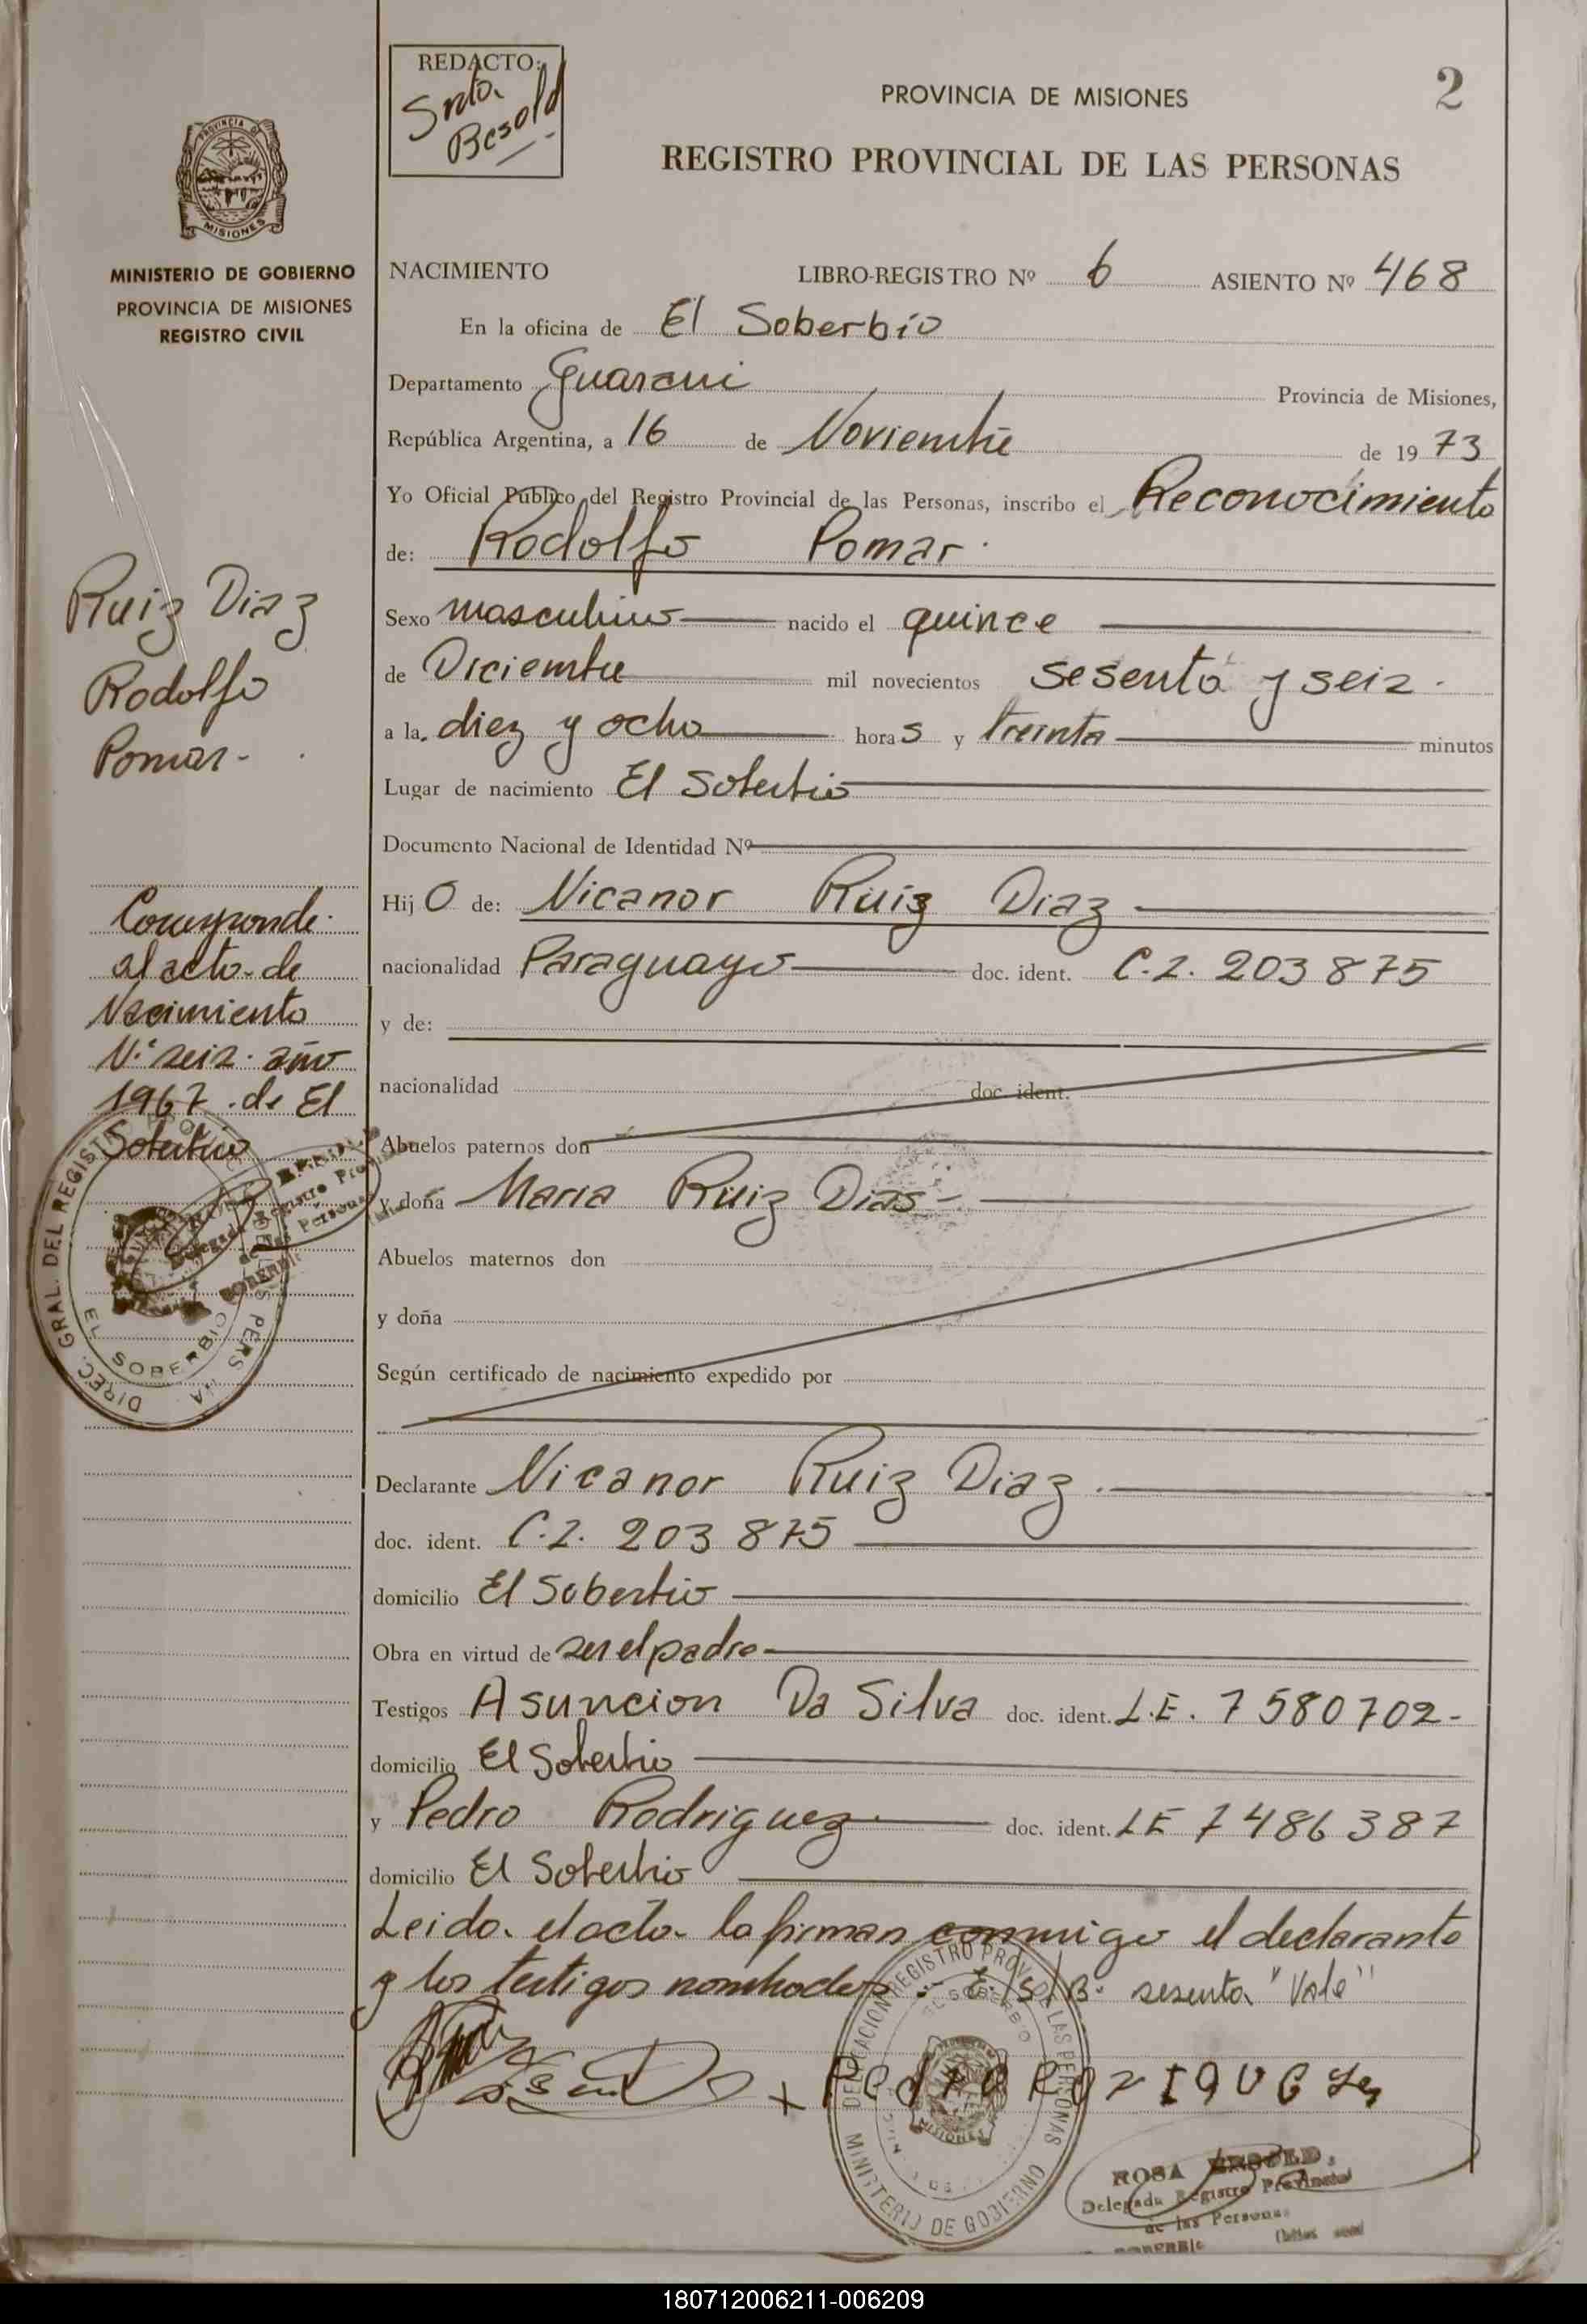 REDACTO:
Srta.
Besold
2
PROVINCIA DE MISIONES
REGISTRO PROVINCIAL DE LAS PERSONAS
PROVINCIA DE
MISIONES
MINISTERIO DE GOBIERNO
PROVINCIA DE MISIONES
REGISTRO CIVIL
NACIMIENTO LIBRO-REGISTRO Nº 6 ASIENTO Nº 468
En la oficina de El Soberbio
Departamento Guarani Provincia de Misiones,
República Argentina, a 16 de Noviembre de 19 73
Yo Oficial Público del Registro Provincial de las Personas, inscribo el Reconocimiento
de: Rodolfo Pomar.
Sexo masculino nacido el quince
de Diciembre mil novecientos sesenta y seis.
a la. diez y ocho hora s y treinta minutos
Lugar de nacimiento El Soberbio
Documento Nacional de Identidad Nº
Hij o de: Nicanor Ruiz Diaz
nacionalidad Paraguayo doc. ident. C.I. 203875
y de:
nacionalidad doc. ident.
Abuelos paternos don
y doña Maria Ruiz Dias
Abuelos maternos don
y doña
Según certificado de nacimiento expedido por
Declarante Nicanor Ruiz Diaz.
doc. ident. C.I. 203875
domicilio El Soberbio
Obra en virtud de ser el padre
Testigos Asuncion Da Silva doc. ident. L.E. 7580702-
domicilio El Soberbio
y Pedro Rodriguez doc. ident. LE 7486387
domicilio El Soberbio
Leida el acta la firman conmigo el declarante
y los testigos nombrados:- E/S/B: sesenta "Vale"
Ruiz Diaz
Rodolfo
Pomar-
Corresponde
al acta de
Nacimiento
N.º seis. año
1967 de El
Soberbio
DIREC. GRAL. DEL REGISTRO
EL SOBERBIO
Delegada Registro Provincial
de las Personas
SOBERBIO
DELEGACION REGISTRO PROV. DE LAS PERSONAS
EL SOBERBIO
MISIONES
MINISTERIO DE GOBIERNO
ROSA BESOLD
Delegada Registro Provincial
de las Personas
SOBERBIO
180712006211-006209